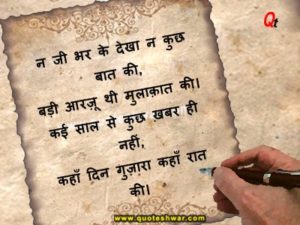 Qt
न जी भर के देखा न कुछ
बात की,
बड़ी आरज़ू थी मुलाक़ात की।
कई साल से कुछ ख़बर ही
नहीं,
कहाँ दिन गुज़ारा कहाँ रात
की।
www.quoteshwar.com